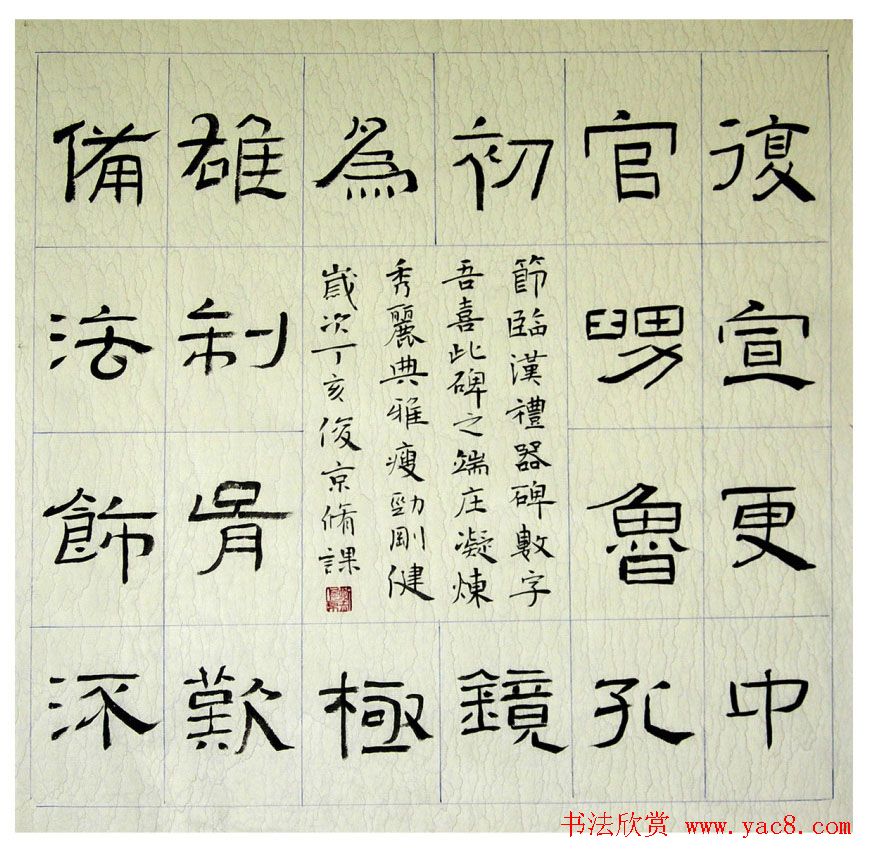 復宣更卬
官舅魯孔
初鏡
為極
雄制歎
備法飾
節臨漢禮器碑數字
吾喜此碑之端庄凝煉
秀麗典雅瘦勁剛健
歲次丁亥俊京脩課
书法欣赏 www.yac8.com